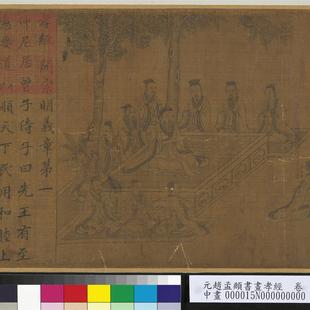 孝經 開宗明義章第一
仲尼居曾子侍子曰先王有至
德要道以順天下民用和睦上
元趙孟頫書畫孝經 卷
中畫 000015N000000000